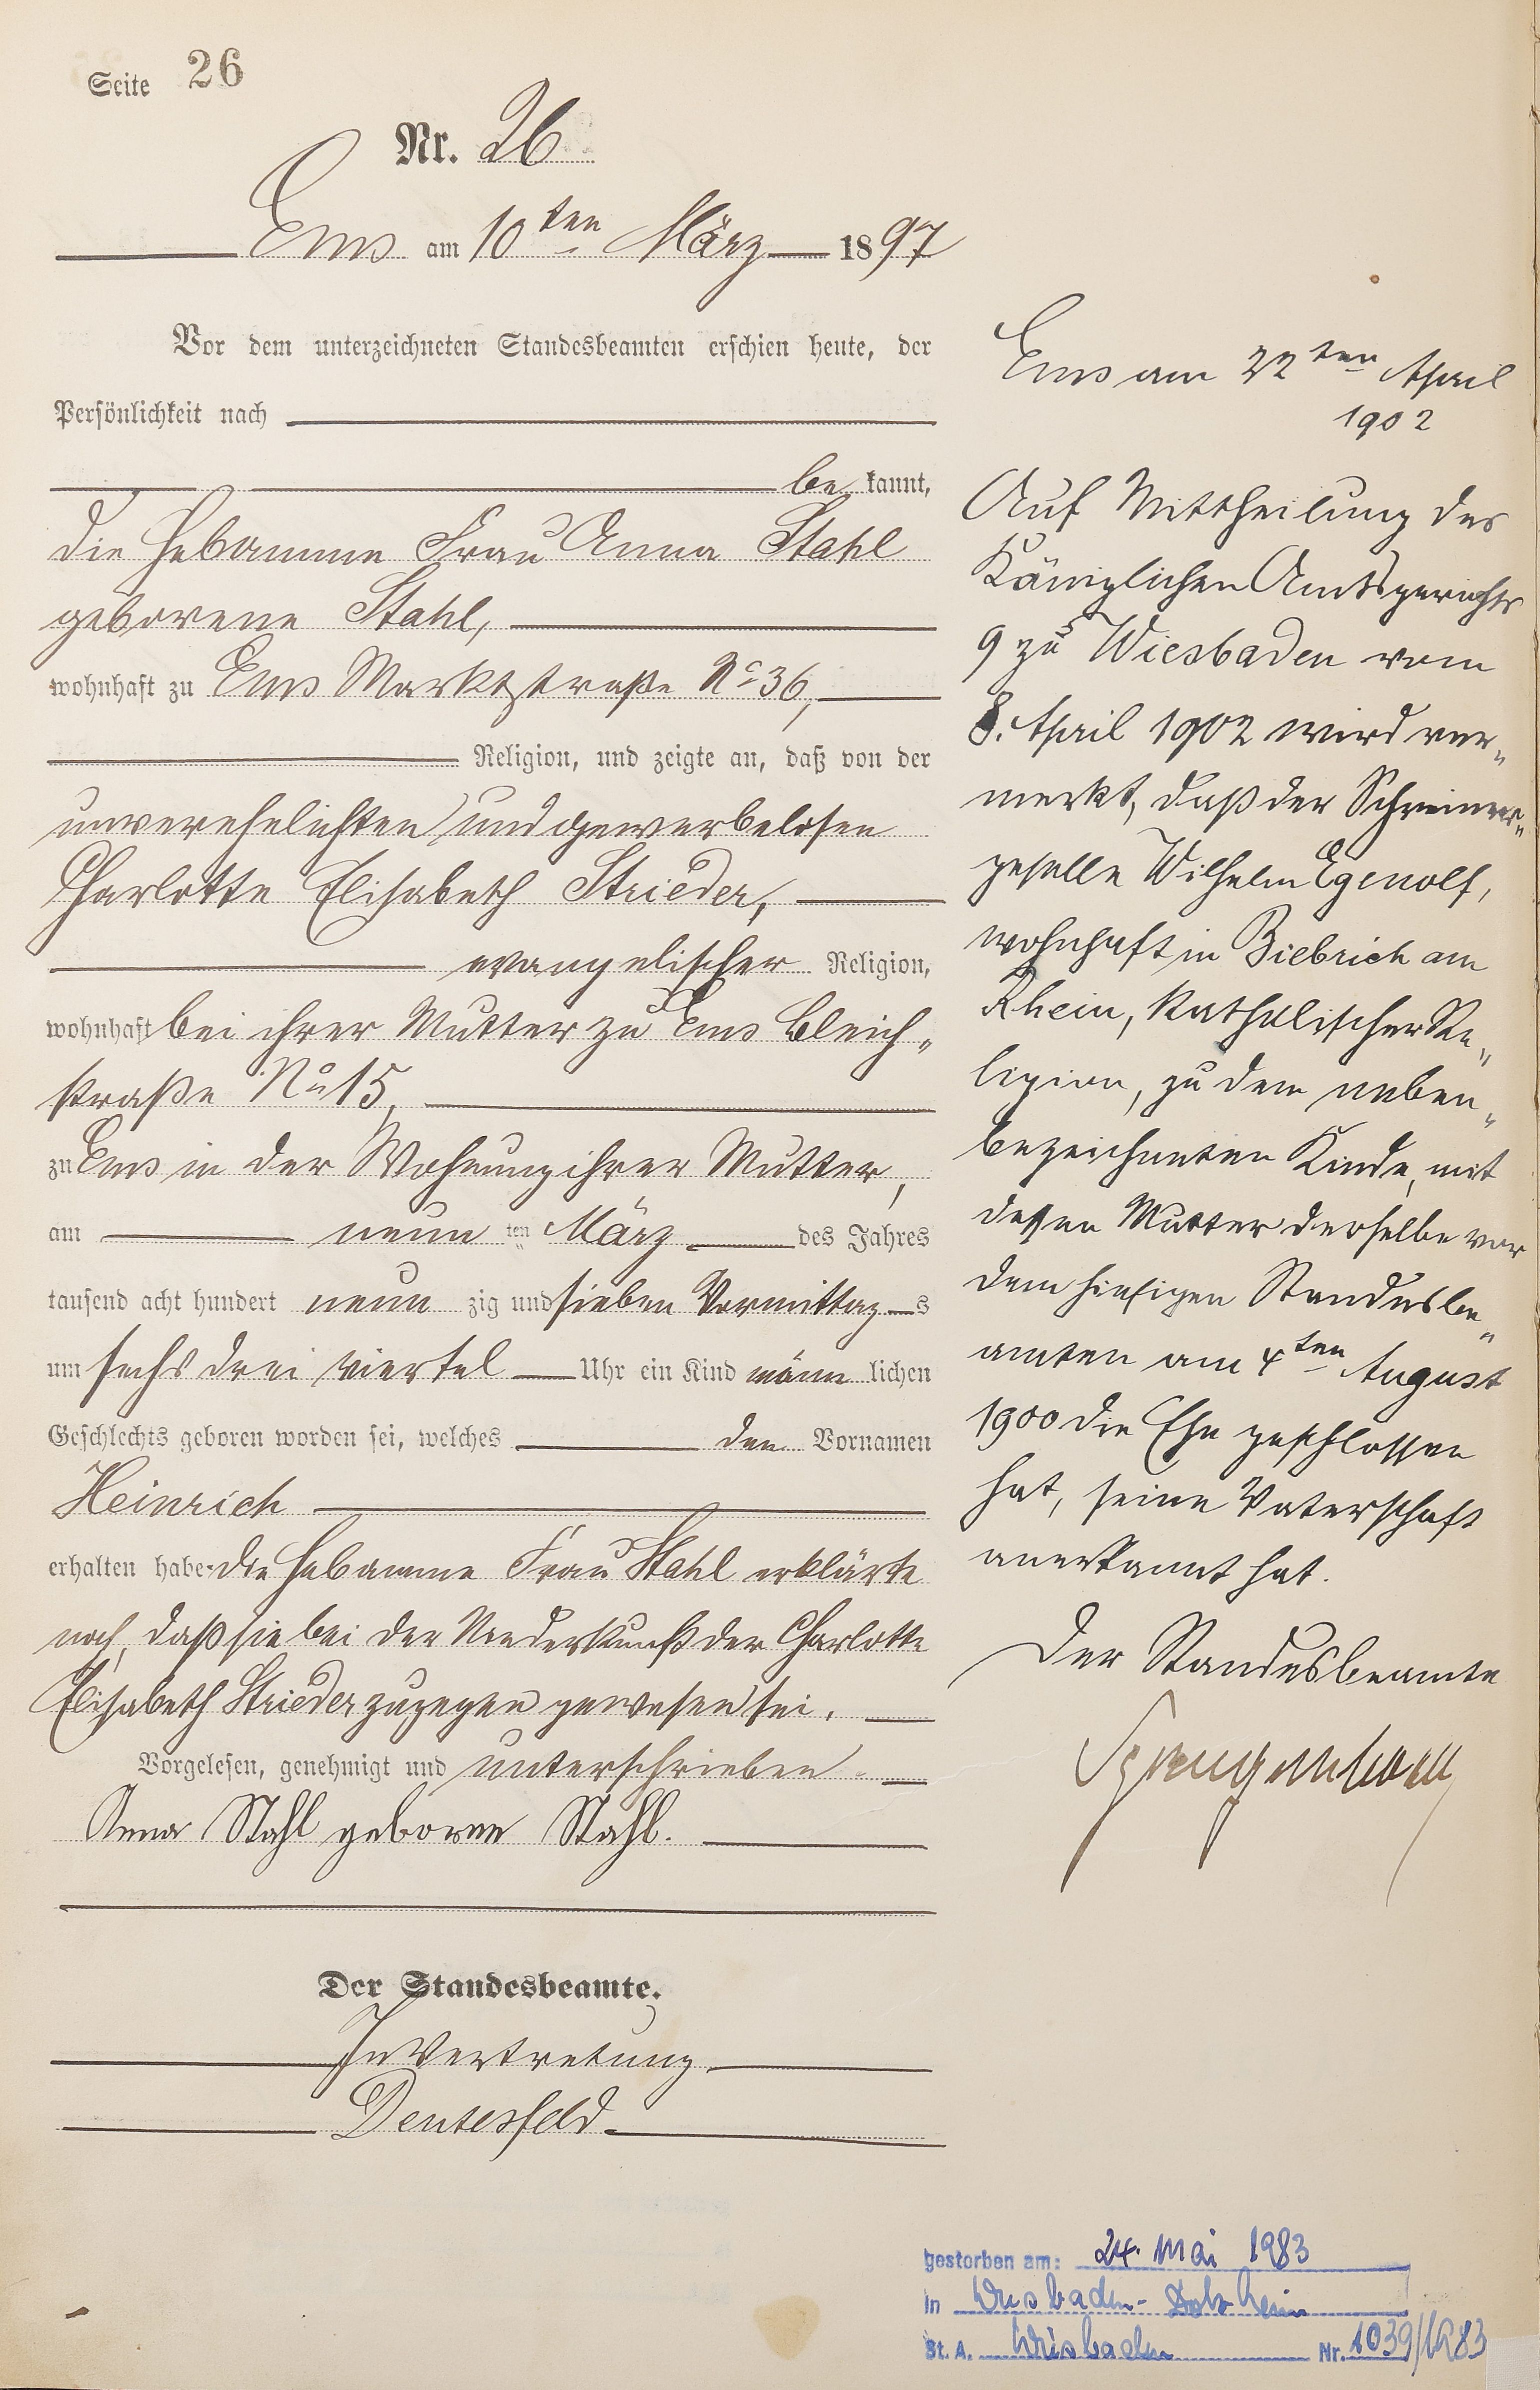 Seite 26
Nr. 26
Ems am 10ten März 1897
Vor dem unterzeichneten Standesbeamten erschien heute, der
Persönlichkeit nach
bekannt,
die Hebamme Frau Anna Stahl
geborene Stahl,
wohnhaft zu Ems Marktstraße No 36,
Religion, und zeigte an, daß von der
unverehelichten und gewerbelosen
Charlotte Elisabeth Strieder,
evangelischer Religion,
wohnhaft bei ihrer Mutter zu Ems Bleich„
straße No 15,
zu Ems in der Wohnung ihrer Mutter,
am neunten März des Jahres
tausend acht hundert neunzig und sieben Vormittags
um sechs drei viertel Uhr ein Kind männlichen
Geschlechts geboren worden sei, welches den Vornamen
Heinrich
erhalten habe. Die Hebamme Frau Stahl erklärte
noch, daß sie bei der Niederkunft der Charlotte
Elisabeth Strieder zugegen gewesen sei.
Vorgelesen, genehmigt und unterschrieben
Anna Stahl geborne Stahl.
Der Standesbeamte.
In Vertretung.
Ems am 22ten April
1902
Auf Mittheilung des
Königlichen Amtsgerichts
9 zu Wiesbaden vom
8. April 1902 wird ver„
merkt, daß der Schreiner„
geselle Wilhelm Egenolf,
wohnhaft in Biebrich am
Rhein, katholischer Re„
ligion, zu dem neben„
bezeichneten Kinde, mit
dessen Mutter derselbe vor
dem hiesigen Standesbe„
amten am 4ten August
1900 die Ehe geschlossen
hat, seine Vaterschaft
anerkannt hat.
Der Standesbeamte
gestorben am: 24. Mai 1983
in Wiesbaden-Dotzheim
St. A. Wiesbaden Nr. 1039/1983